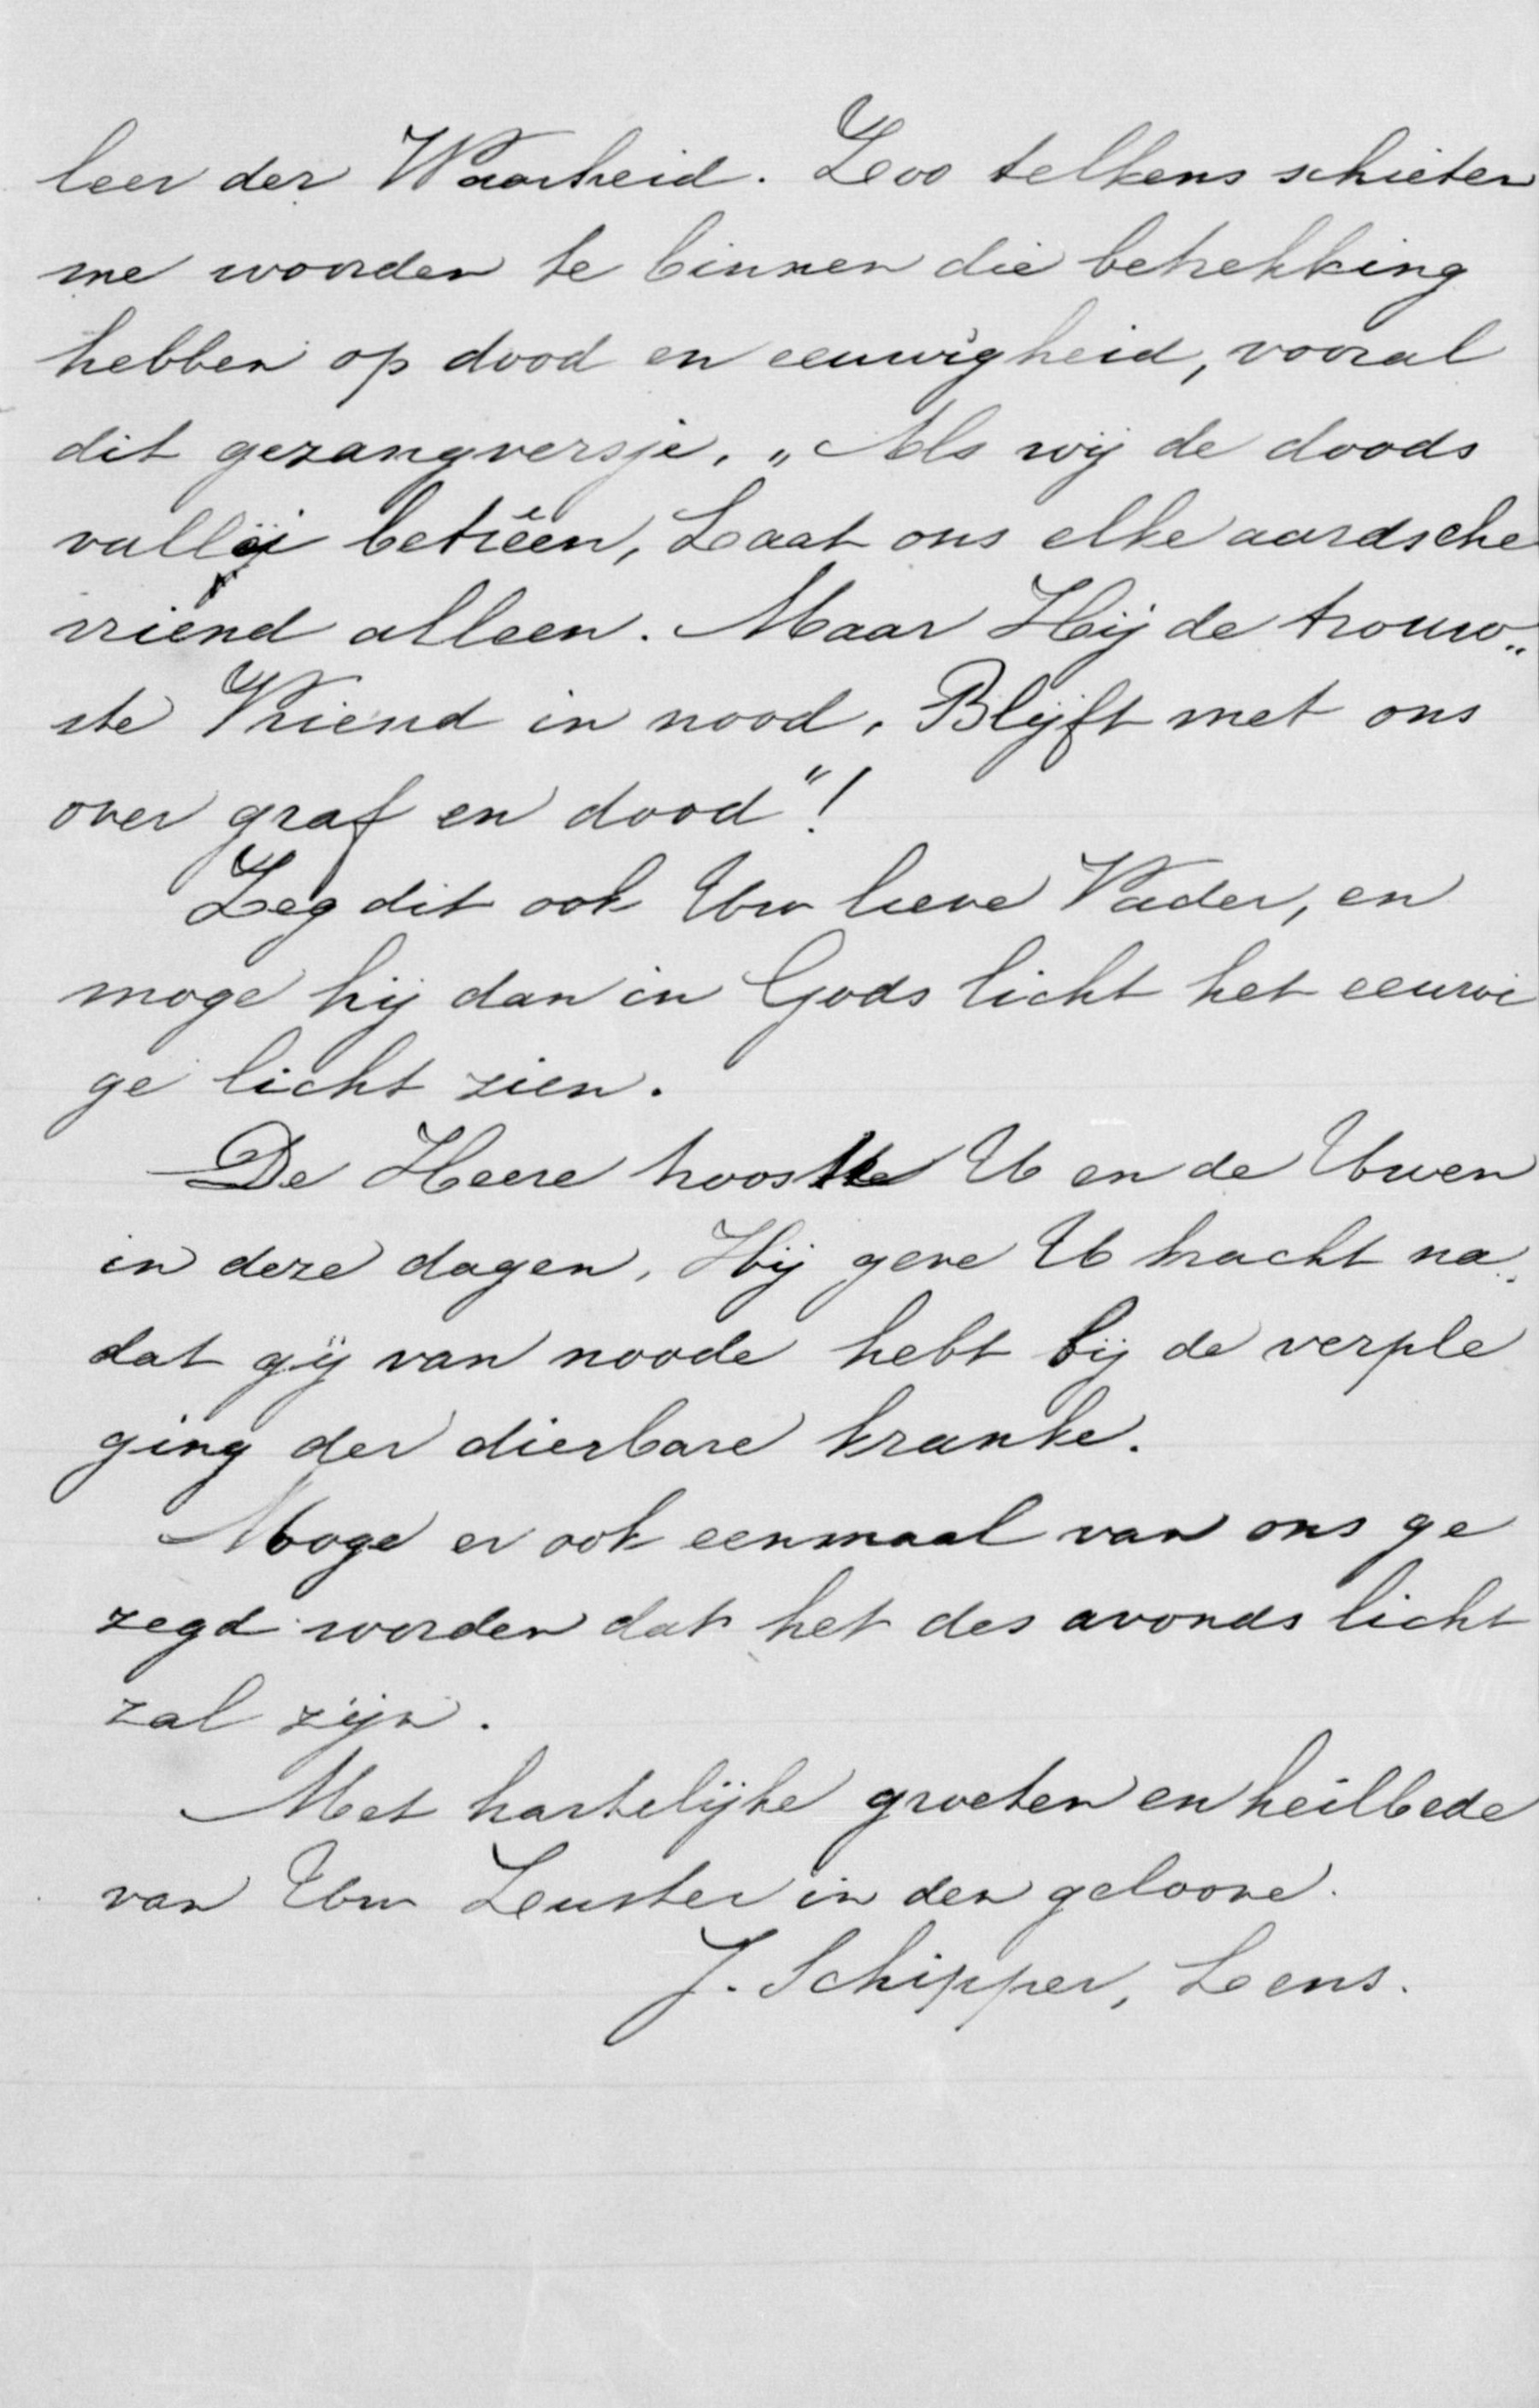 leer der Waarheid. Zoo telkens schieten
me woorden te binnen die betrekking
hebben op dood en eeuwigheid, vooral
dit gezangversje. „Als wij de doods
vallei betreên, Laat ons elke aardsche
vriend alleen. Maar Hij de trouw„
ste Vriend in nood, Blijft met ons
over graf en dood"!
Zeg dit ook Uw lieve Vader, en
moge hij dan in Gods licht het eeuwi
ge licht zien.
De Heere trooste U en de Uwen
in deze dagen, Hij geve U kracht na
dat gij van noode hebt bij de verple
ging der dierbare kranke.
Moge er ook eenmaal van ons ge
zegd worden dat het des avonds licht
zal zijn.
Met hartelijke groeten en heilbede
van Uw Zuster in den geloove.
J. Schipper, Leens.